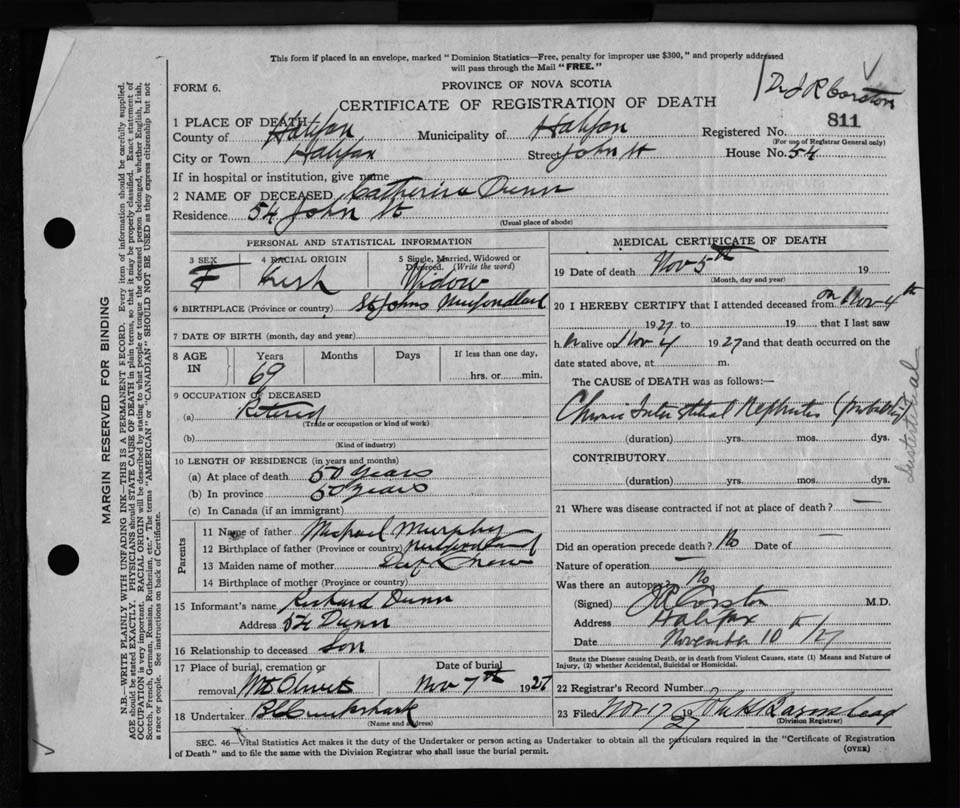 This form if placed in an envelope, marked "Dominion Statistics—Free, penalty for improper use $300," and properly addressed
will pass through the Mail "FREE."
Dr J R Corston
FORM 6.
PROVINCE OF NOVA SCOTIA
CERTIFICATE OF REGISTRATION OF DEATH
811
1 PLACE OF DEATH
County of Halifax Municipality of Halifax Registered No.
(For use of Registrar General only)
City or Town Halifax Street John St House No. 54
If in hospital or institution, give name
2 NAME OF DECEASED Catherine Dunn
Residence 54 John St
(Usual place of abode)
PERSONAL AND STATISTICAL INFORMATION
3 SEX 4 RACIAL ORIGIN 5 Single, Married, Widowed or Divorced. (Write the word)
F Irish Widow
6 BIRTHPLACE (Province or country) St Johns Newfondland
7 DATE OF BIRTH (month, day and year)
8 AGE IN Years Months Days If less than one day,
69 hrs. or min.
9 OCCUPATION OF DECEASED
(a) Retired
(Trade or occupation or kind of work)
(b)
(Kind of industry)
10 LENGTH OF RESIDENCE (in years and months)
(a) At place of death 50 years
(b) In province 50 years
(c) In Canada (if an immigrant)
Parents
11 Name of father Michael Murphy
12 Birthplace of father (Province or country)
13 Maiden name of mother Dont Know
14 Birthplace of mother (Province or country)
15 Informant's name Richard Dunn
Address 54 Dunn
16 Relationship to deceased Son
17 Place of burial, cremation or Date of burial
removal Mt Olivet Nov 7th 1927
18 Undertaker Cruikshank
(Name and address)
MEDICAL CERTIFICATE OF DEATH
19 Date of death Nov 5th 19
(Month, day and year)
20 I HEREBY CERTIFY that I attended deceased from on Nov 4th
1927 to 19 that I last saw
h alive on Nov 4 1927 and that death occurred on the
date stated above, at m.
The CAUSE of DEATH was as follows:—
Chronic Interstitial Nephritis (probably)
(duration) yrs. mos. dys.
CONTRIBUTORY
(duration) yrs. mos. dys.
21 Where was disease contracted if not at place of death? —
Did an operation precede death? No Date of —
Nature of operation —
Was there an autopsy? No
(Signed) J R Corston M.D.
Address Halifax
Date November 10th /27
State the Disease causing Death, or in death from Violent Causes, state (1) Means and Nature of
Injury, (2) whether Accidental, Suicidal or Homicidal.
22 Registrar's Record Number
23 Filed Nov 17 19 27 Barnstead
(Division Registrar)
SEC. 46—Vital Statistics Act makes it the duty of the Undertaker or person acting as Undertaker to obtain all the particulars required in the "Certificate of Registration
of Death" and to file the same with the Division Registrar who shall issue the burial permit.
(OVER)
MARGIN RESERVED FOR BINDING
N.B.—WRITE PLAINLY WITH UNFADING INK—THIS IS A PERMANENT RECORD. Every item of information should be carefully supplied.
AGE should be stated EXACTLY. PHYSICIANS should STATE CAUSE OF DEATH in plain terms, so that it may be properly classified. Exact statement of
OCCUPATION is very important. RACIAL ORIGIN will be described by stating to what people or tongue the deceased person belonged, whether English, Irish,
Scotch, French, German, Russian, Ruthenian, etc. The terms "AMERICAN" or "CANADIAN" SHOULD NOT BE USED as they express citizenship but not
a race or people. See instructions on back of Certificate.